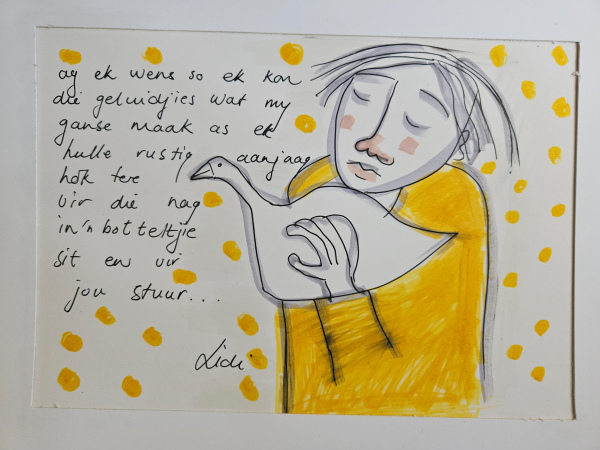 ag ek wens so ek kon
die geluidjies wat my
ganse maak as ek
hulle rustig aanjaag
hok toe
vir die nag
in 'n botteltjie
sit en vir
jou stuur...
Lidi